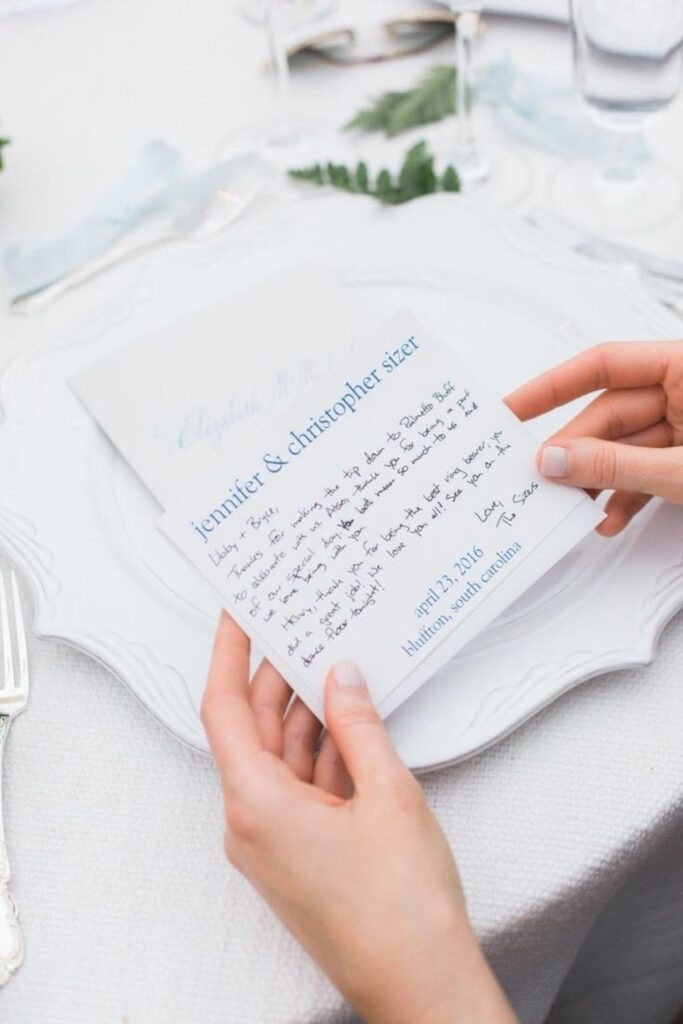 Elizabeth
jennifer & christopher sizer
Libby + Bryce,
Thanks for making the trip down to Palmetto Bluff
to celebrate with us. Also, thank you for being a part
of our special day. You both mean so much to us and
we love being with you.
Henry, thank you for being the best ring bearer, you
did a great job! We love you all! See you on the
dance floor tonight!
Love,
The Sizers
april 23, 2016
bluffton, south carolina